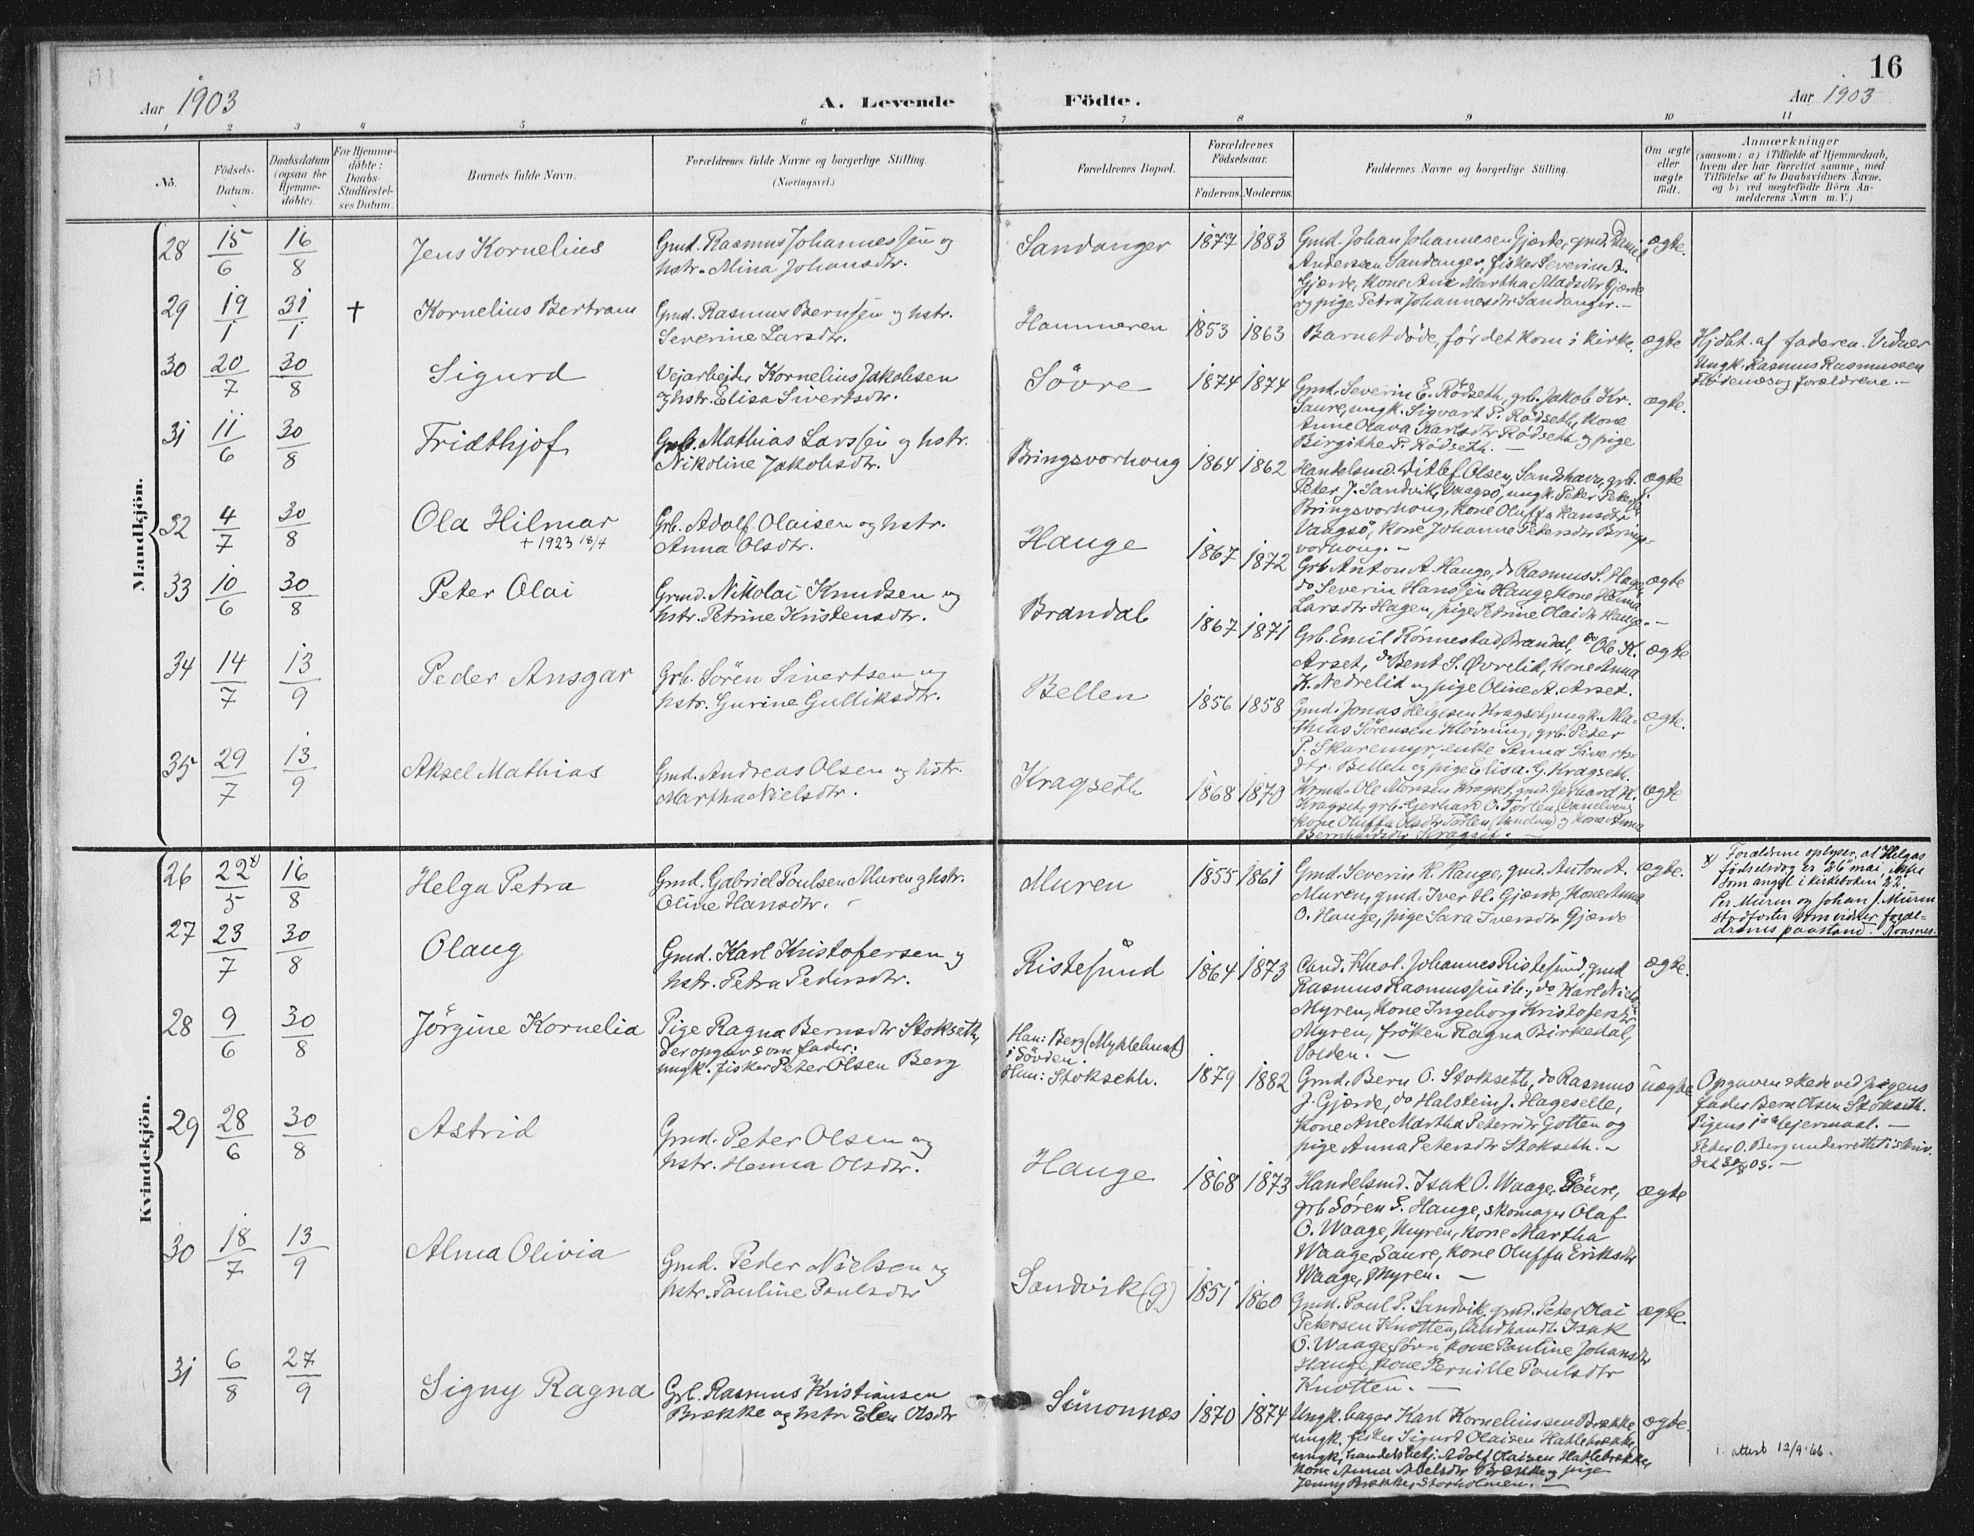 16
Aar 1903
A. Levende
Födte.
Aar 1903
1 2 3 4 5 6 7 8 9 10 11
No.
Födsels-
Datum.
Daabsdatum
(ogsaa for
Hjemme-
döbte).
For Hjemme-
döbte:
Daabs-
Stadfæstel-
ses Datum.
Barnets fulde Navn.
Forældrenes fulde Navne og borgerlige Stilling.
(Næringsvei.)
Forældrenes Bopæl.
Forældrenes
Födselsaar.
Faderens. Moderens.
Faddernes Navne og borgerlige Stilling.
Om ægte
eller
uægte
födt.
Anmærkninger
(saasom: a) i Tilfælde af Hjemmedaab,
hvem der har forrettet samme, med
Tilföielse af to Daabsvidners Navne,
og b) ved uægtefödte Börn An-
melderens Navn m. V.)
Mandkjön.
28 15/6 16/8 Jens Kornelius
Gmd. Rasmus Johannessen og
hstr. Mina Johansdtr.
Sandanger 1877 1883
Gmd. Johan Johannesen Gjærde, gmd. Daniel
Andersen Sandanger, fisker Severin A.
Gjærde, kone Ane Martha Madsdtr Gjærde
og pige Petra Johannesdtr Sandanger. –
ægte.
29 19/1 31/1 † Kornelius Bertram
Gmd. Rasmus Bernsen og hstr.
Severine Larsdtr.
Hammeren 1853 1863
Barnet döde,för det kom i kirke.
ægte
Hjdbt. af faderen. Vidner
Ungk. Rasmus Rasmussen
Flödenæs og forældrene. –
30 20/7 30/8 Sigurd
Vejarbejder Kornelius Jakobsen
og hstr. Elisa Sivertsdtr.
Sövre 1874 1874
Gmd. Severin E. Rödseth, grb. Jakob Kr.
Saure, ungk. Sigvart P. Rödseth, kone
Anne Olava Karlsdtr Rödseth og pige
Birgithe P. Rödseth. –
ægte.
31 11/6 30/8 Fridthjof
Grb. Mathias Larssen og hstr.
Nikoline Jakobsdtr.
Bringsvorhoug 1864 1862
Handelsmd. Ditlef Olsen, Sandshavn, grb.
Peter J. Sandvik, Vaagsö, ungk. Peter Peters.
Bringsvorhoug, kone Oluffa Hansdtr
Vaagsö, kone Johanne Petersdtr Brings-
vorhoug. –
ægte
32 4/7 30/8 Ola Hilmar
† 1923 18/4
Grb. Adolf Olaisen og hstr.
Anna Olsdtr.
Hauge 1867 1872
Grb Anton A. Hauge, do Rasmus S. Hage,
do Severin Hanssen Hauge, kone Hanna
Larsdtr Hagen, pige Petrine Olaidtr Hauge. –
ægte
33 10/6 30/8 Peter Olai
Grmd. Nikolai Knudsen og
hstr. Petrine Kristensdtr.
Brandal 1867 1871
Grb. Emil Rönnestad, Brandal, do Ole K.
Aarset, do Bent S. Øvrelid, kone Anna
K. Nedrelid og pige Oline A. Aarset.
ægte
34 14/7 13/9 Peder Ansgar
Grb. Sören Sivertsen og
hstr. Gurine Gulliksdtr.
Bellen 1856 1858
Gmd. Jonas Helgesen Kragset, ungk. Ma-
thias Sörensen Klövning, grb. Peter
P. Skaremyr enke Anna Siverts-
dtr. Bellen og pige Elisa G. Kragseth.
ægte.
35 29/7 13/9 Aksel Mathias
Gmd. Andreas Olsen og hstr.
Martha Nielsdtr.
Kragseth 1868 1870
Krmd. Ole Monsen Kragset, gmd. Gerhard K.
Kragset, grb. Gerhard O. Törlen,
kone Oluffa Olsdtr Törlen og kone Anna
Bernhardsdtr Kragset. –
ægte
Kvindekjön.
26 22x)/5 16/8 Helga Petra
Gmd. Gabriel Poulsen Muren og hstr.
Oline Hansdtr.
Muren 1855 1861
Gmd. Severin K. Hauge, gmd. Anton A.
Muren, gmd. Iver H. Gjærde, kone Anna
O. Hauge, pige Sara Iversdtr Gjærde
ægte.
x) Forældrene oplyser, at Helgas
födselsdag er 26 mai, ikke
som angit i kirkeboken 22.
Per Muren og Johan J. Muren
stadfæster som vidner foræl-
drenes paastand.
27 23/7 30/8 Olaug
Gmd. Karl Kristofersen og
hstr. Petra Pedersdtr.
Ristesund 1864 1873
Cand. theol. Johannes Ristesund, gmd
Rasmus Rasmussen ib., do Karl Niels.
Myren, kone Ingeborg Kristofersdtr
Myren, fröken Ragna Birkedal,
Volden. –
ægte.
28 9/6 30/8 Jörgine Kornelia
Pige Ragna Bernsdtr Stokseth,
der opgav som fader:
ungk. fisker Peter Olsen Berg
Han: Berg (Myklebust)
i Sövden.
Hun: Stokseth. 1879 1882
Gmd. Bern O. Stokseth, do Rasmus
J. Gjærde, do Halstein J. Hageselle,
kone Ane Martha Petersdtr Gotten og
pige Anna Petersdtr Stokseth. –
uægte
Opgaven skede ved pigens
fader Bern Olsen Stokseth.
Pigens 1ste lejermaal. –
Peter O. Berg underrettet i skriv.
det 30/8 03. –
29 28/6 30/8 Astrid
Gmd. Peter Olsen og
hstr. Hanna Olsdtr.
Hauge 1868 1873
Handelsmd. Isak O. Waage, Saure,
grb Sören S. Hauge, skomager Olaf
O. Waage, Myren, kone Martha
Waage, Saure, kone Oluffa Eriksdtr
Waage, Myren. –
ægte
30 18/7 13/9 Alma Olivia
Gmd. Peder Nielsen og
hstr. Pauline Poulsdtr
Sandvik (G) 1851 1860
Gmd. Poul P. Sandvik, gmd. Peter Olai
Petersen Knotten, landhandl. Isak
O. Waage, Sövr, kone Pauline Johansdtr
Hauge, kone Pernille Poulsdtr
Knotten. –
ægte.
31 6/8 27/9 Signy Ragna
Grb. Rasmus Kristiansen
Brække og hstr Elen Olsdtr
Simonnæs 1870 1874
Ungk. bager Karl Korneliussen Brække,
ungk. fisker Sigurd Olaisen Hatlebrække,
ungk. handelsbetj. Adolf Olaisen Hatlebrække,
kone Anna Abelsdtr Brække og pige
Jenny Brække, Storholmen. –
ægte.
1. attest 12/9-66.